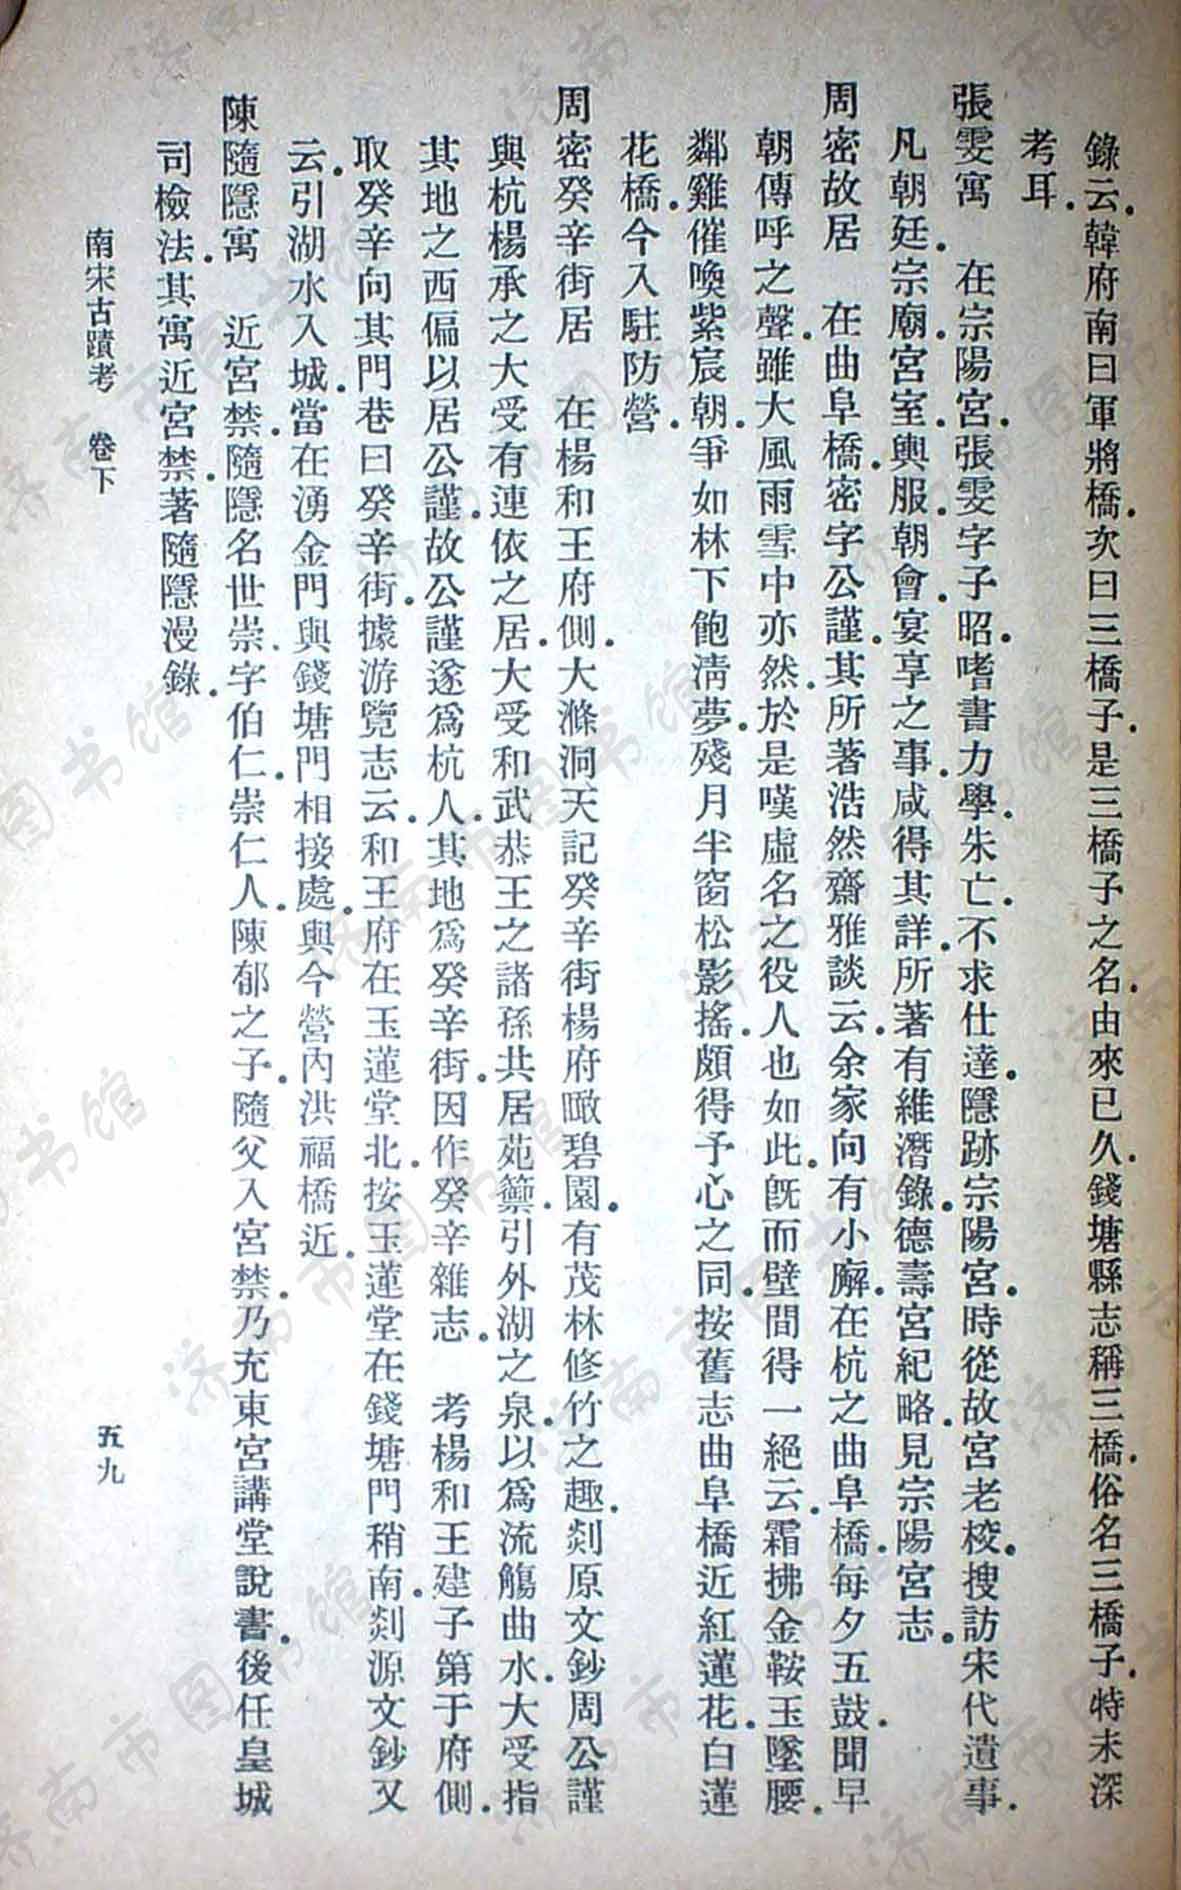 錄云.韓府南曰軍將橋.次曰三橋子.是三橋子之名.由來已久.錢塘縣志稱三橋.俗名三橋子.特未深
考耳.
張雯寓　在宗陽宮.張雯字子昭.嗜書力學.朱亡.不求仕達.隱跡宗陽宮.時從故宮老校.搜訪宋代遺事.
凡朝廷.宗廟.宮室.輿服.朝會.宴享之事.咸得其詳.所著有維潛錄.德壽宮紀略.見宗陽宮志.
周密故居　在曲阜橋.密字公謹.其所著浩然齋雅談云.余家向有小廨.在杭之曲阜橋.每夕五鼓.聞早
朝傳呼之聲.雖大風雨雪中亦然.於是嘆虛名之役人也如此.旣而壁間得一絕云.霜拂金鞍玉墜腰.
鄰雞催喚紫宸朝.爭如林下飽淸夢.殘月半窗松影搖.頗得予心之同.按舊志曲阜橋近紅蓮花.白蓮
花橋.今入駐防營.
周密癸辛街居　在楊和王府側.大滌洞天記癸辛街楊府瞰碧園.有茂林修竹之趣.剡原文鈔周公謹
與杭楊承之大受有連.依之居.大受和武恭王之諸孫.共居苑籞.引外湖之泉.以爲流觴曲水.大受指
其地之西偏以居公謹.故公謹遂爲杭人.其地爲癸辛街.因作癸辛雜志.　考楊和王建子第于府側.
取癸辛向其門巷曰癸辛街.據游覽志云.和王府在玉蓮堂北.按玉蓮堂在錢塘門稍南.剡源文鈔又
云.引湖水入城.當在湧金門與錢塘門相接處.與今營內洪福橋近.
陳隨隱寓　近宮禁.隨隱名世崇.字伯仁.崇仁人.陳郁之子.隨父入宮禁.乃充東宮講堂說書.後任皇城
司檢法.其寓近宮禁.著隨隱漫錄.
南宋古蹟考　卷下　五九
济南市图书馆